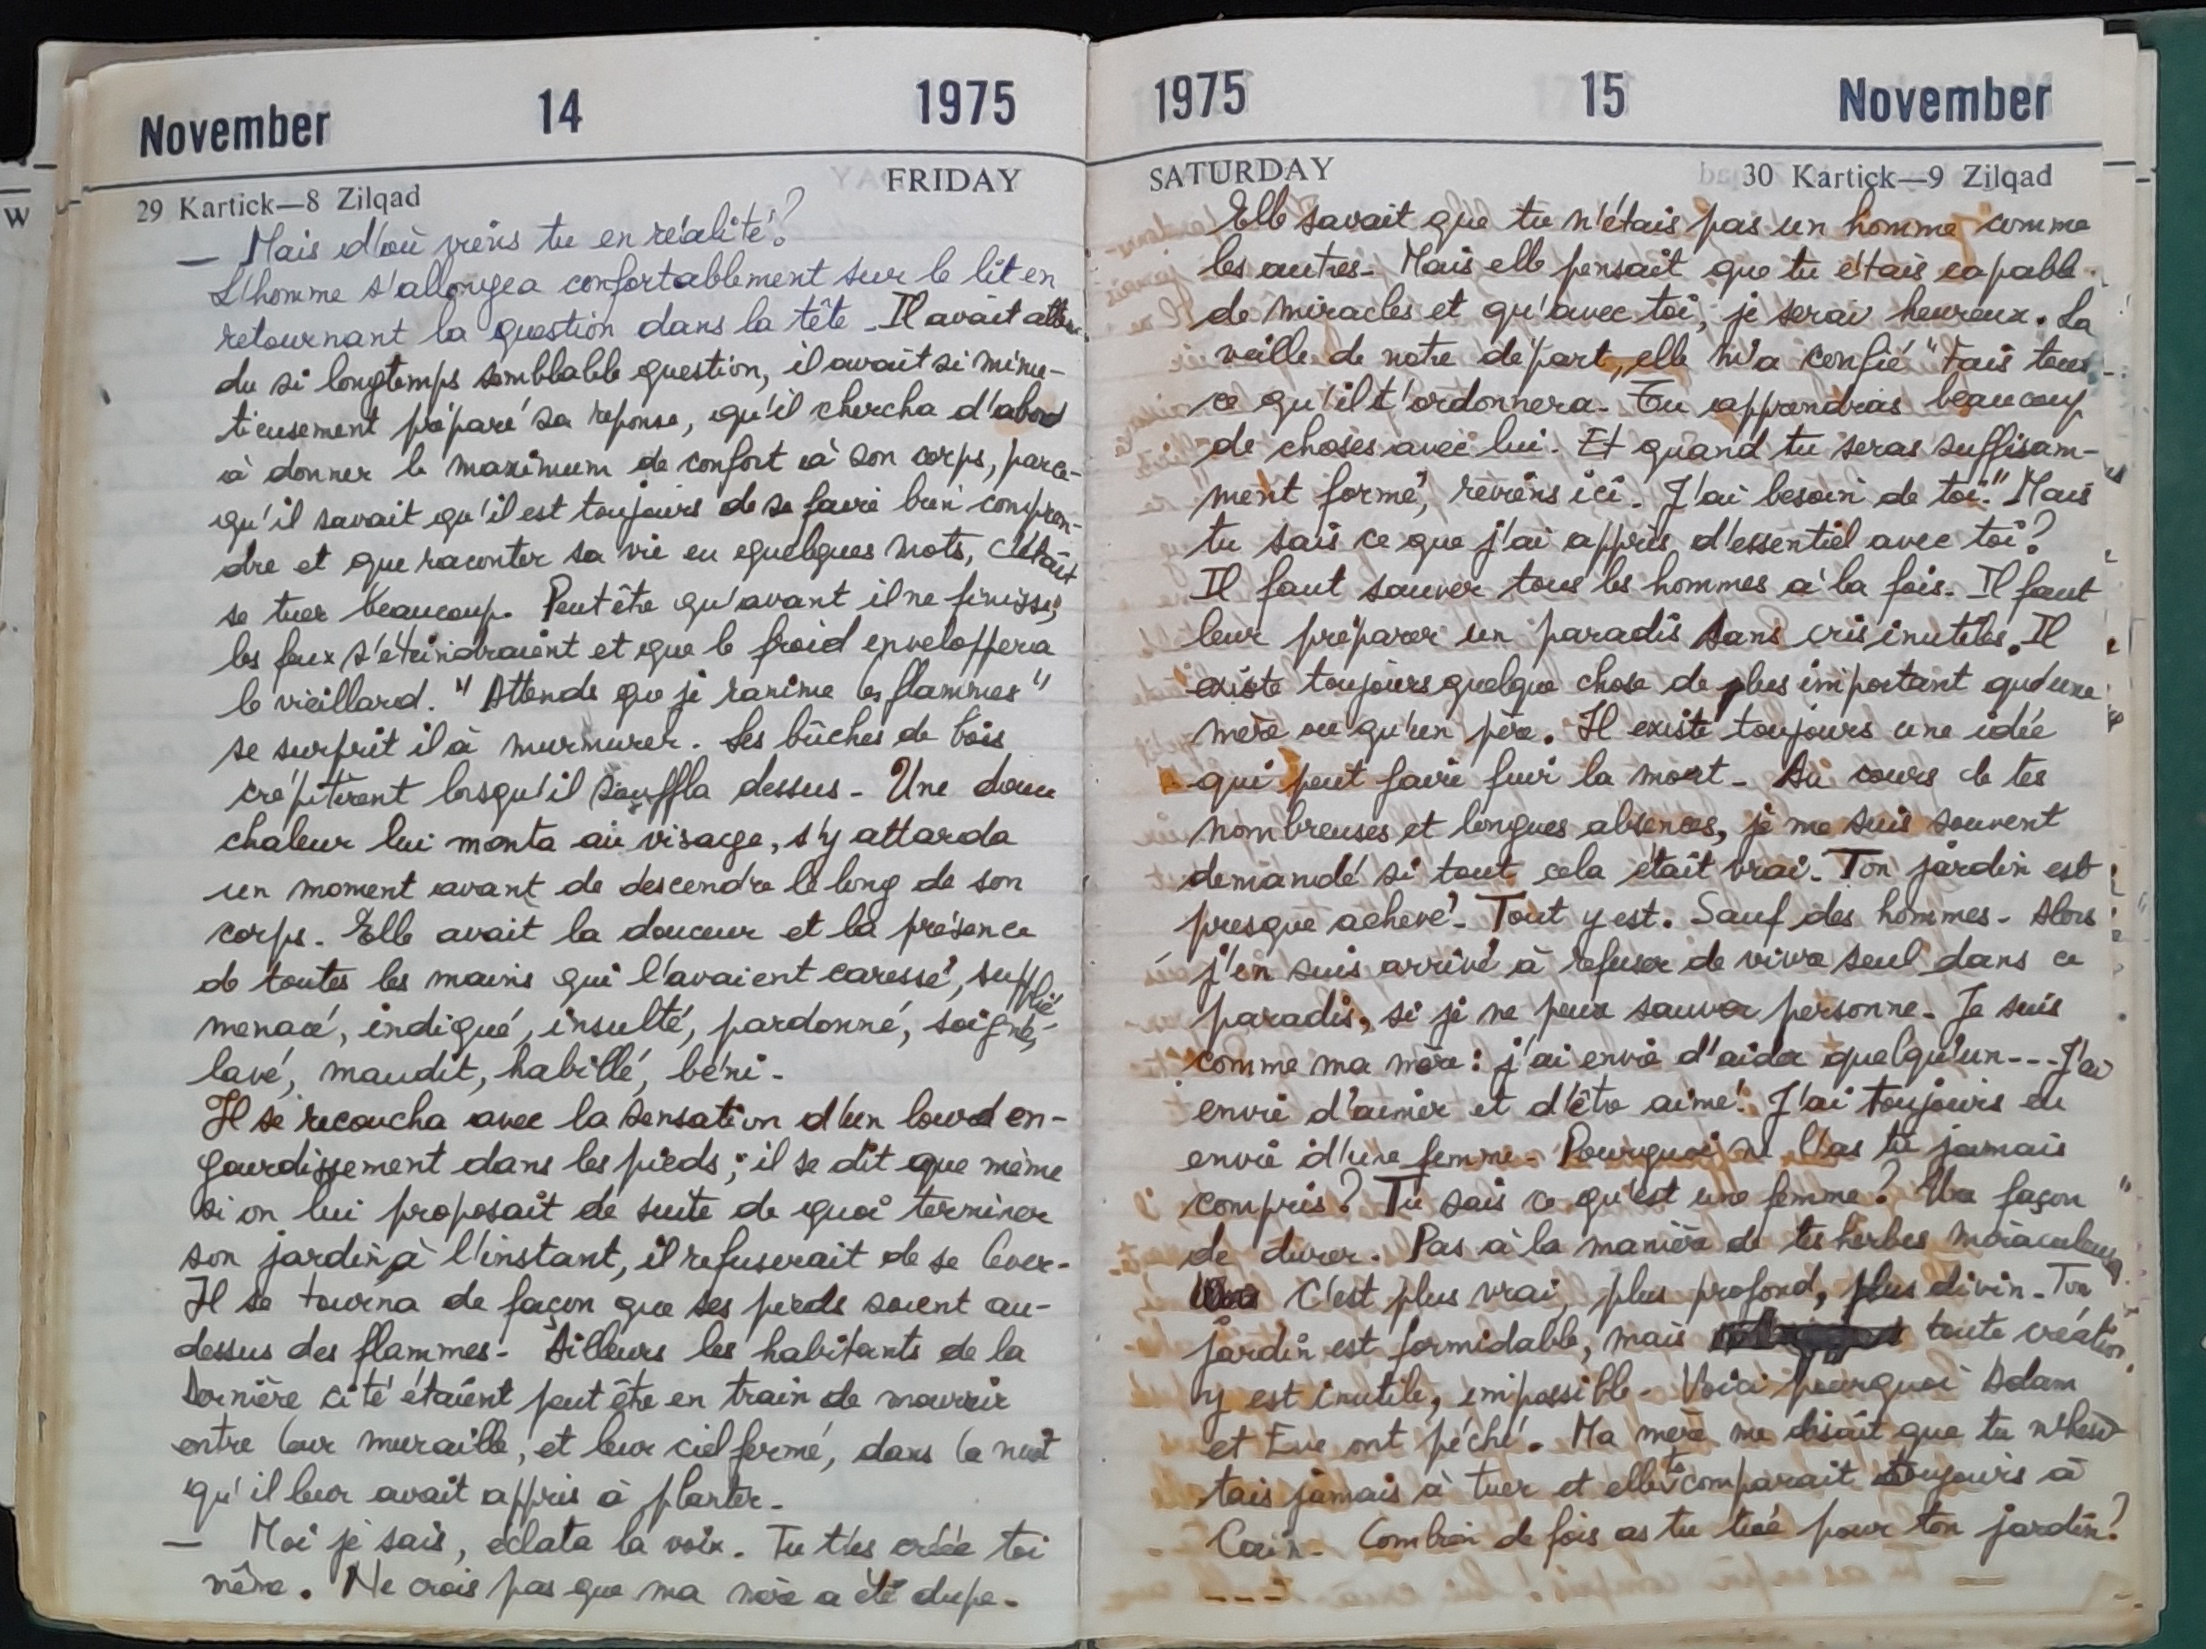 November 14 1975
29 Kartick—8 Zilqad FRIDAY
— Mais d'où viens tu en réalité?
L'homme s'allongea confortablement sur le lit en
retournant la question dans la tête - Il avait atten-
du si longtemps semblable question, il avait si minu-
tieusement préparé sa réponse, qu'il chercha d'abord
à donner le maximum de confort à son corps, parce-
qu'il savait qu'il est toujours de se faire bien compren-
dre et que raconter sa vie en quelques mots, c'était
se tuer beaucoup. Peut être qu'avant il ne finisse,
les feux s'éteindraient et que le froid enveloppera
le vieillard. "Attends que je ranime les flammes"
se surprit il à murmurer. Les bûches de bois
crépitèrent lorsqu'il souffla dessus - Une douce
chaleur lui monta au visage, s'y attarda
un moment avant de descendre le long de son
corps. Elle avait la douceur et la présence
de toutes les mains qui l'avaient caressé, supplié
menacé, indiqué, insulté, pardonné, soigné,
lavé, maudit, habillé, béni -
Il se recoucha avec la sensation d'un lourd en-
gourdissement dans les pieds; il se dit que même
si on lui proposait de suite de quoi terminer
son jardin à l'instant, il refuserait de se lever -
Il se tourna de façon que ses pieds soient au-
dessus des flammes - Ailleurs les habitants de la
Dernière cité étaient peut être en train de mourrir
entre leur muraille, et leur ciel fermé, dans la nuit
qu'il leur avait appris à planter -
— Moi je sais, éclata la voix. Tu t'es créée toi
même. Ne crois pas que ma mère a été dupe -
1975 15 November
SATURDAY 30 Kartick—9 Zilqad
Elle savait que tu n'étais pas un homme comme
les autres - Mais elle pensait que tu étais capable
de miracles et qu'avec toi, je serai heureux. La
veille de notre départ, elle m'a confié "Fais tous
ce qu'il t'ordonnera - Tu apprendras beaucoup
de choses avec lui. Et quand tu seras suffisam-
ment formé, reviens ici. J'ai besoin de toi." Mais
tu sais ce que j'ai appris d'essentiel avec toi?
Il faut sauver tous les hommes à la fois - Il faut
leur préparer un paradis sans cris inutiles. Il
existe toujours quelque chose de plus important qu'une
mère ou qu'un père. Il existe toujours une idée
qui peut faire fuir la mort - Au cours de tes
nombreuses et longues absences, je me suis souvent
demandé si tout cela était vrai - Ton jardin est
presque achevé - Tout y est. Sauf des hommes - Alors
j'en suis arrivé à refuser de vivre seul dans ce
paradis, si je ne peux sauver personne - Je suis
comme ma mère : j'ai envie d'aider quelqu'un --- J'ai
envie d'aimer et d'être aimé! J'ai toujours eu
envie d'une femme - Pourquoi ne l'as tu jamais
compris? Tu sais ce qu'est une femme? Une façon
de durer. Pas à la manière de tes herbes miraculeuses
C'est plus vrai, plus profond, plus divin - Ton
jardin est formidable, mais toute création
y est inutile, impossible - Voici pourquoi Adam
et Eve ont péché. Ma mère me disait que tu n'hési-
tais jamais à tuer et elle te comparait toujours à
Caïn - Combien de fois as tu tué pour ton jardin?